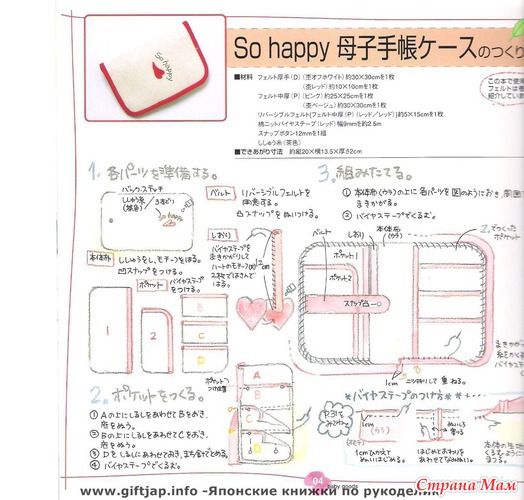 So happy 母子手帳ケースのつくり
So happy
■材料 フェルト厚手(D)(杢オフホワイト)約30×30cmを1枚
(杢レッド)約10×10cmを1枚
フェルト中厚(P)(ピンク)約25×25cmを1枚
(杢ベージュ)約30×30cmを1枚
リバーシブルフェルト[フェルト中厚(P)(レッド/レッド)]約5×15cmを1枚
綿ニットバイヤステープ(レッド)幅9mmを約2.5m
スナップボタン12mmを1組
ししゅう糸(茶色)
■できあがり寸法 約縦20×横13.5×厚さ2cm
この本で使用
フェルトは巻
紹介していま
1. 各パーツを準備する。
バックステッチ
ししゅう糸
(茶色)
3本どり
So happy
本体布
ししゅうをし、モチーフをはる。
凹スナップをつける。
ベルト
リバーシブルフェルトを
用意する。
凸スナップをぬいつける。
しおり
バイヤステープを
まきかがりして
ハートのモチーフの
2枚ではさんで
はる。
12cm
ポケット
バイヤステープ
をつける。
1
2
B
C
D
2. ポケットをつくる。
① Aの上にしるしをあわせてBをおき、
底をぬう。
② Bの上にしるしをあわせてCをおき、
底をぬう。
③ Dをしるしにあわせておき、まち針でとめる。
④ バイヤステープでくるむ。
ポケット
つけ位置
A
B
C
D
3. 組みたてる。
① 本体布(ウラ)の上に各パーツを図のようにおき、周囲
まきかがる。
② バイヤステープでくるむ。
ベルト
しおり
本体布
(ウラ)
2.でつくった
ポケット
ポケット1
ポケット2
スナップ凸
まきかが
糸をかくす
バイヤステ
1cm
重ねる。
*バイヤステープのつけ方*
P.31も
みてね
1cm
(ウラ)
1cmひかえて
ぬいはじめる。
はじめておりめを
あわせてぬいとめる。
本体の生地
くるむように
まつる。
04
baby goods
www.giftjap.info -Японские книжки по рукоделию
Страна Мам